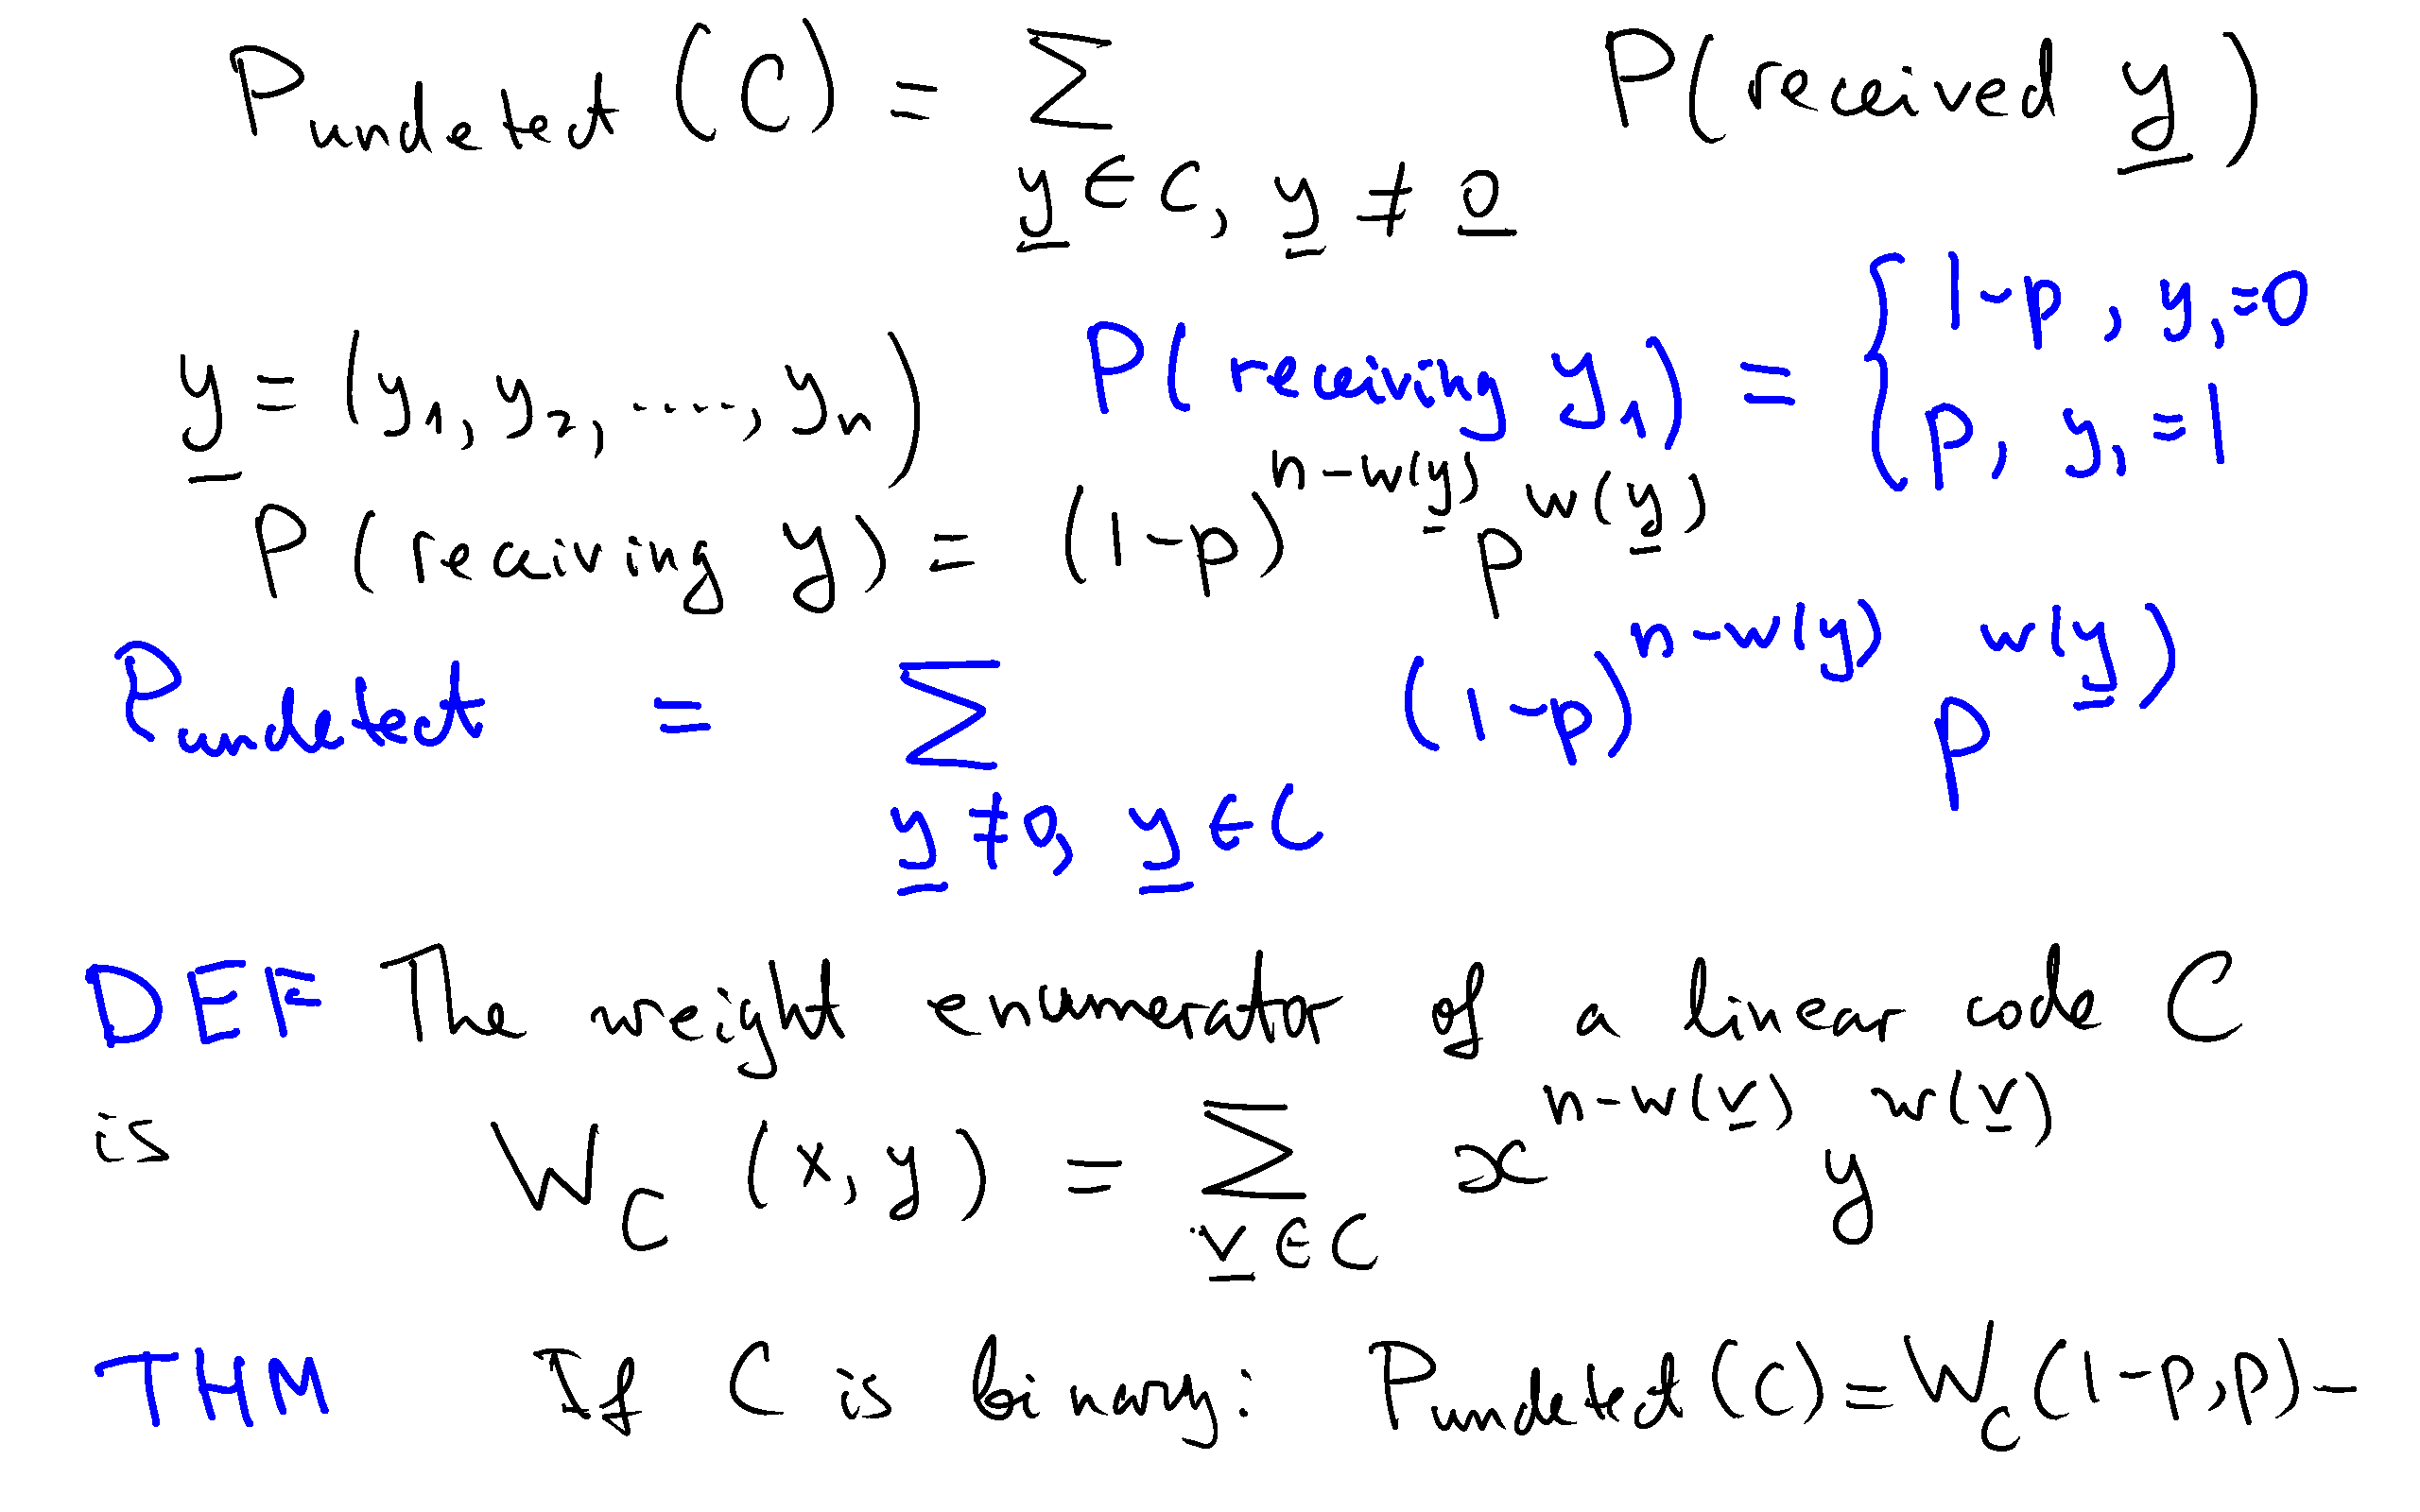 P_undetect (C) = ∑_{y̲ ∈ C, y̲ ≠ 0̲} P(received y̲)
y̲ = (y₁, y₂, ....., yₙ) P(receiving y₁) = { 1-p, y₁=0
p, y₁=1
P(receiving y) = (1-p)^{n-w(y̲)} p^{w(y̲)}
P_undetect = ∑_{y̲ ≠ 0, y̲ ∈ C} (1-p)^{n-w(y)} p^{w(y̲)}
DEF The weight enumerator of a linear code C
is W_C (x, y) = ∑_{v̲ ∈ C} x^{n-w(v̲)} y^{w(v̲)}
THM If C is binary: P_undetect (C) = W_C (1-p, p) -